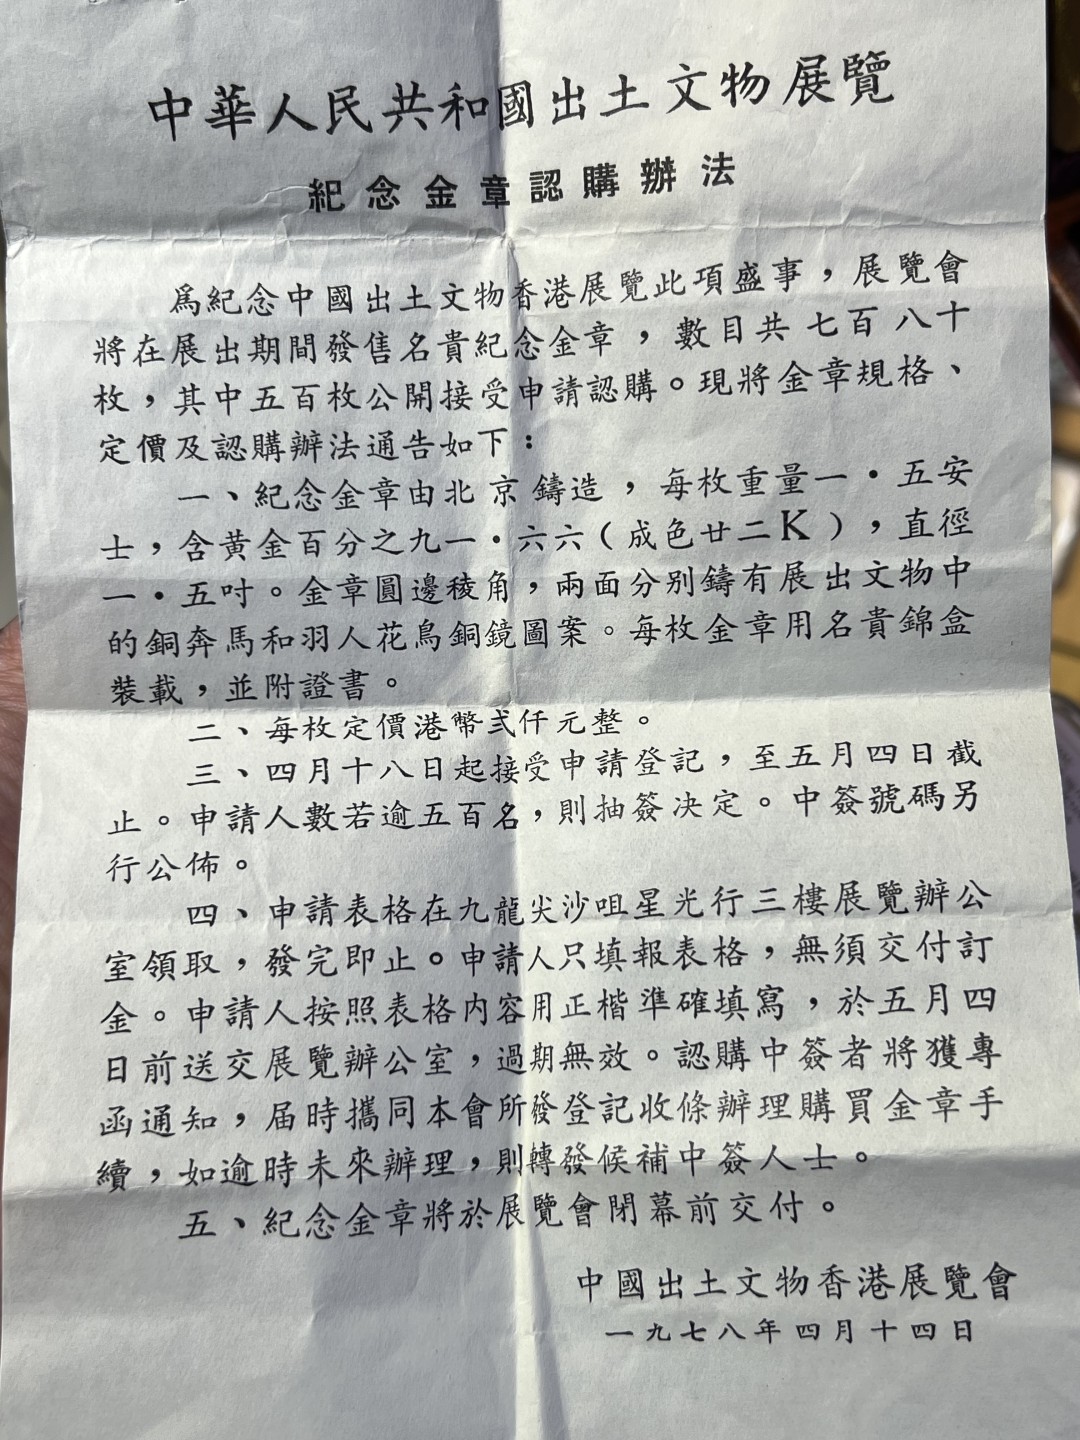 中華人民共和國出土文物展覽
紀念金章認購辦法
爲紀念中國出土文物香港展覽此項盛事，展覽會
將在展出期間發售名貴紀念金章，數目共七百八十
枚，其中五百枚公開接受申請認購。現將金章規格、
定價及認購辦法通告如下：
一、紀念金章由北京鑄造，每枚重量一・五安
士，含黃金百分之九一・六六（成色廿二K），直徑
一・五吋。金章圓邊稜角，兩面分別鑄有展出文物中
的銅奔馬和羽人花鳥銅鏡圖案。每枚金章用名貴錦盒
裝載，並附證書。
二、每枚定價港幣弍仟元整。
三、四月十八日起接受申請登記，至五月四日截
止。申請人數若逾五百名，則抽簽決定。中簽號碼另
行公佈。
四、申請表格在九龍尖沙咀星光行三樓展覽辦公
室領取，發完即止。申請人只填報表格，無須交付訂
金。申請人按照表格內容用正楷準確填寫，於五月四
日前送交展覽辦公室，過期無效。認購中簽者將獲專
函通知，屆時攜同本會所發登記收條辦理購買金章手
續，如逾時未來辦理，則轉發候補中簽人士。
五、紀念金章將於展覽會閉幕前交付。
中國出土文物香港展覽會
一九七八年四月十四日